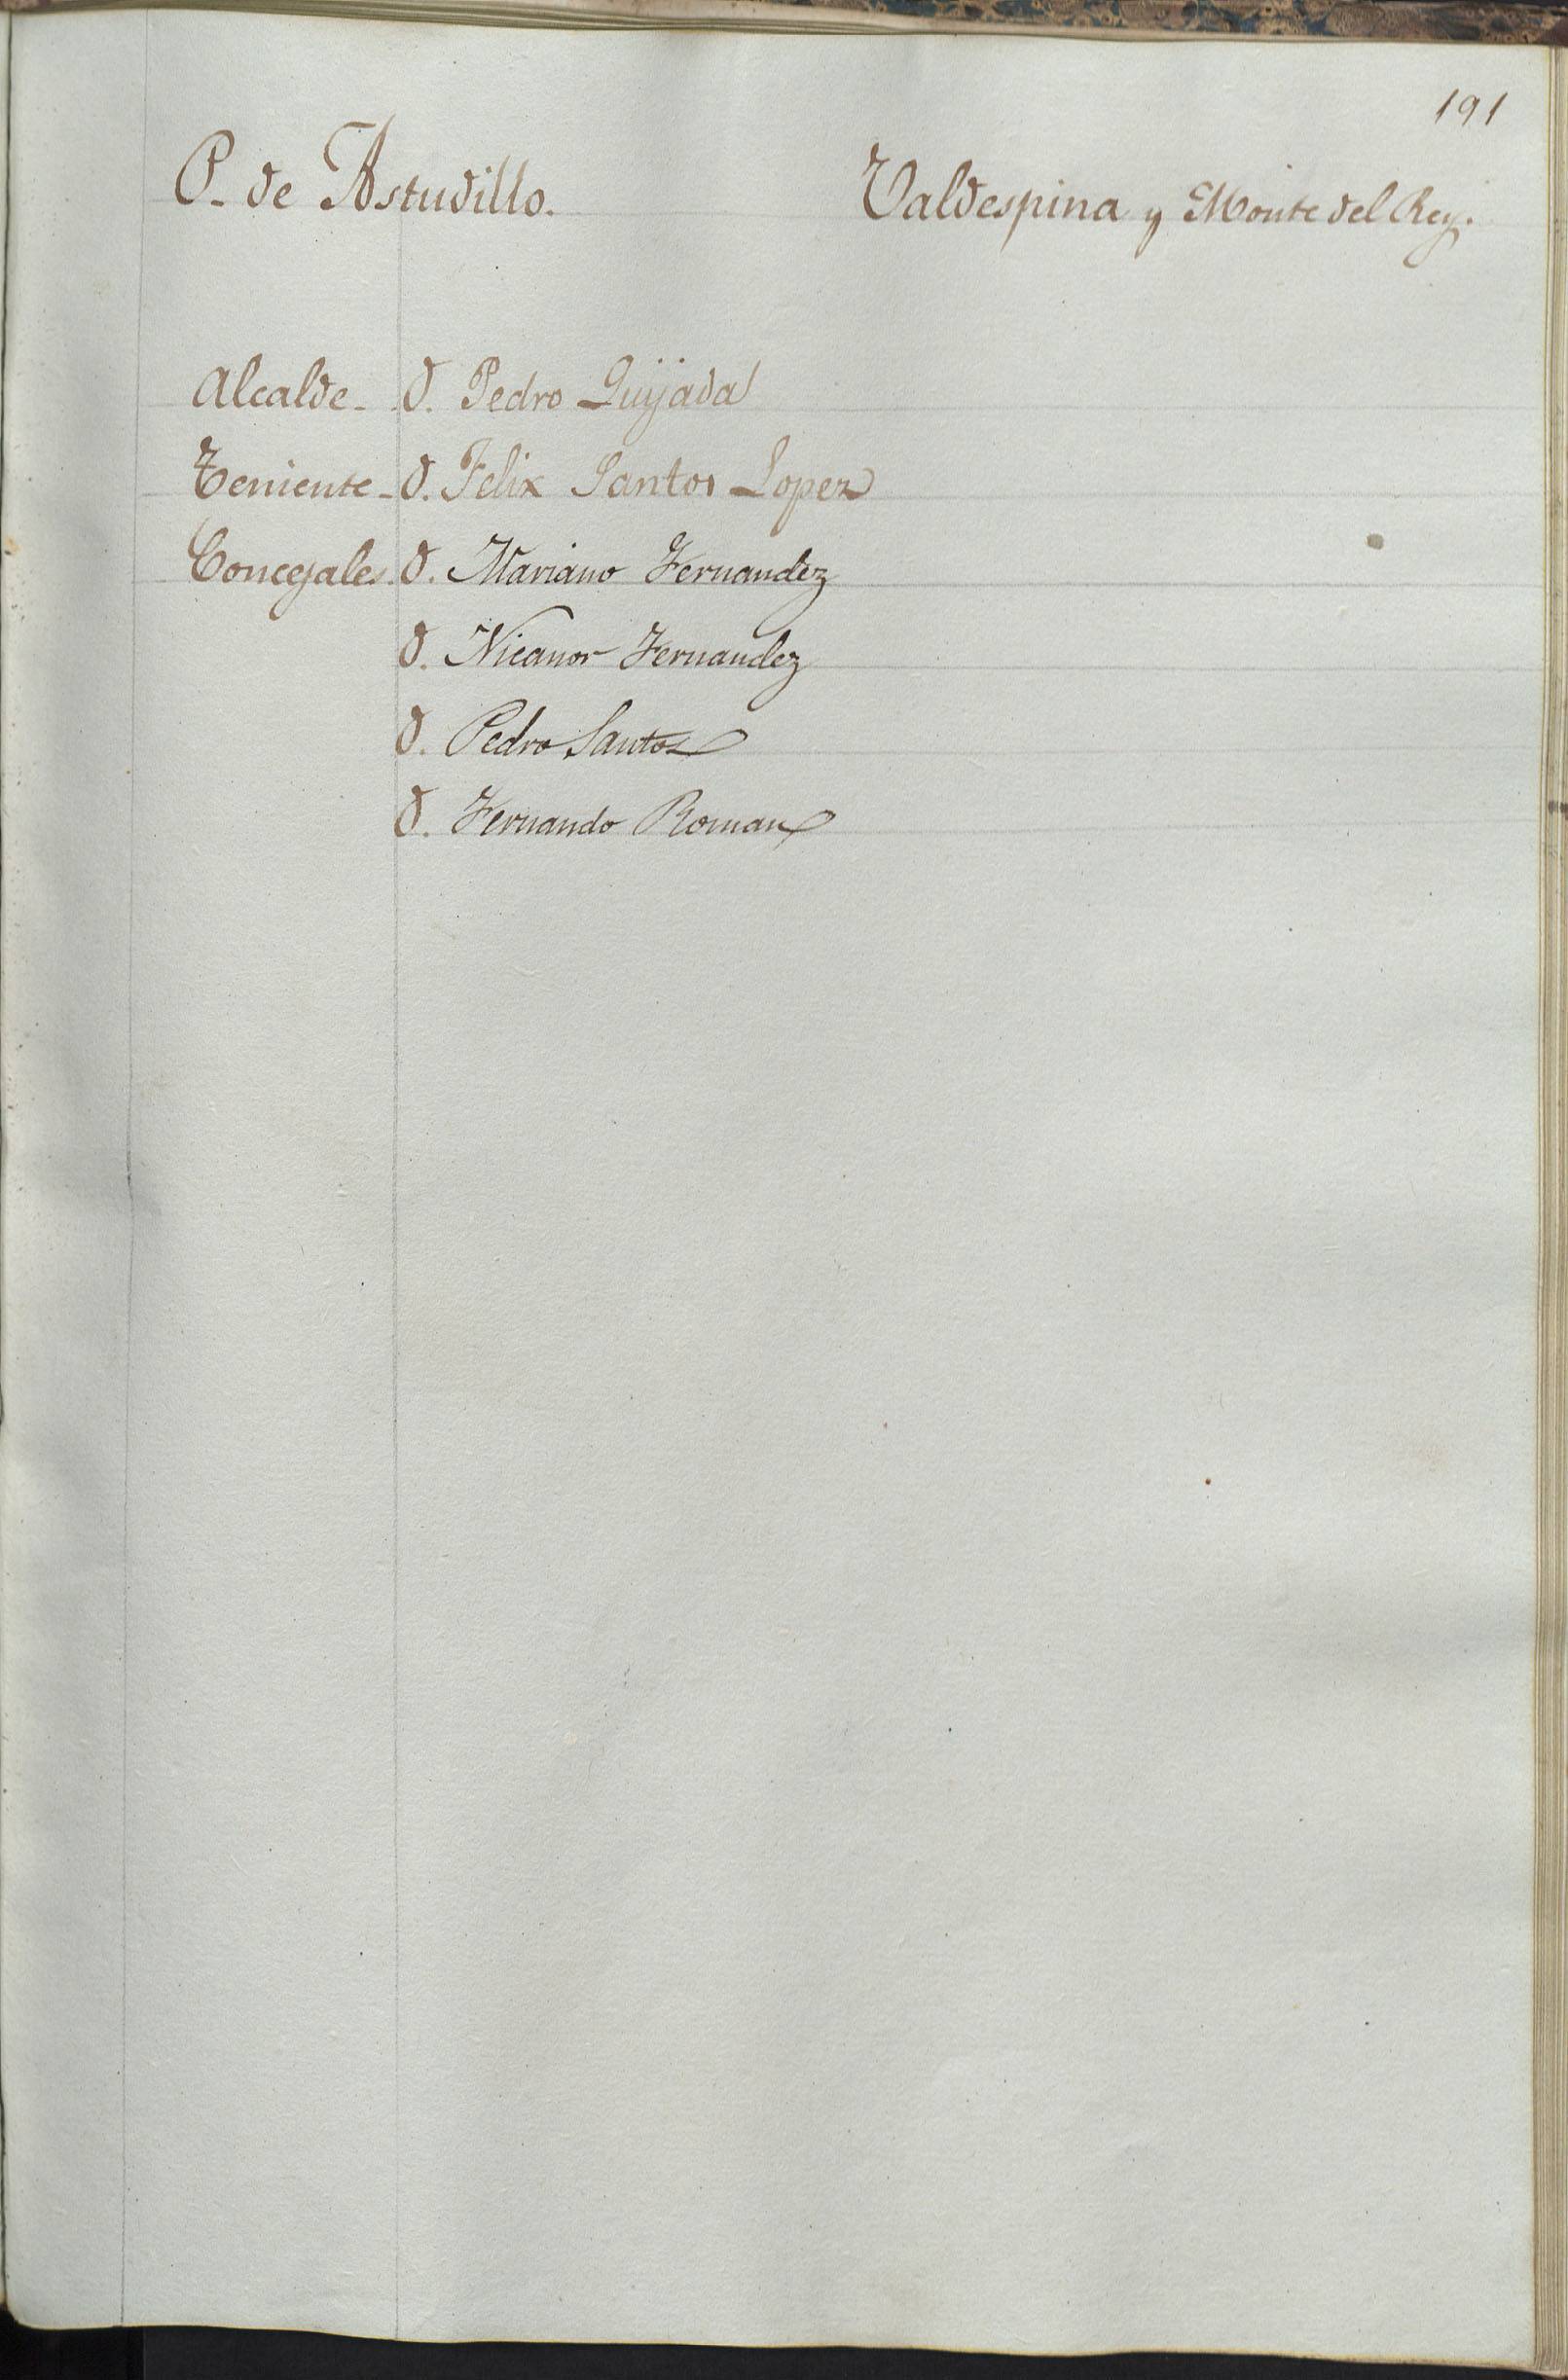 191
P. de Astudillo. Valdespina y Monte del Rey.
Alcalde - D. Pedro Quijada
Teniente - D. Felix Santos Lopez
Concejales. D. Mariano Fernandez
D. Nicanor Fernandez
D. Pedro Santos
D. Fernando Roman